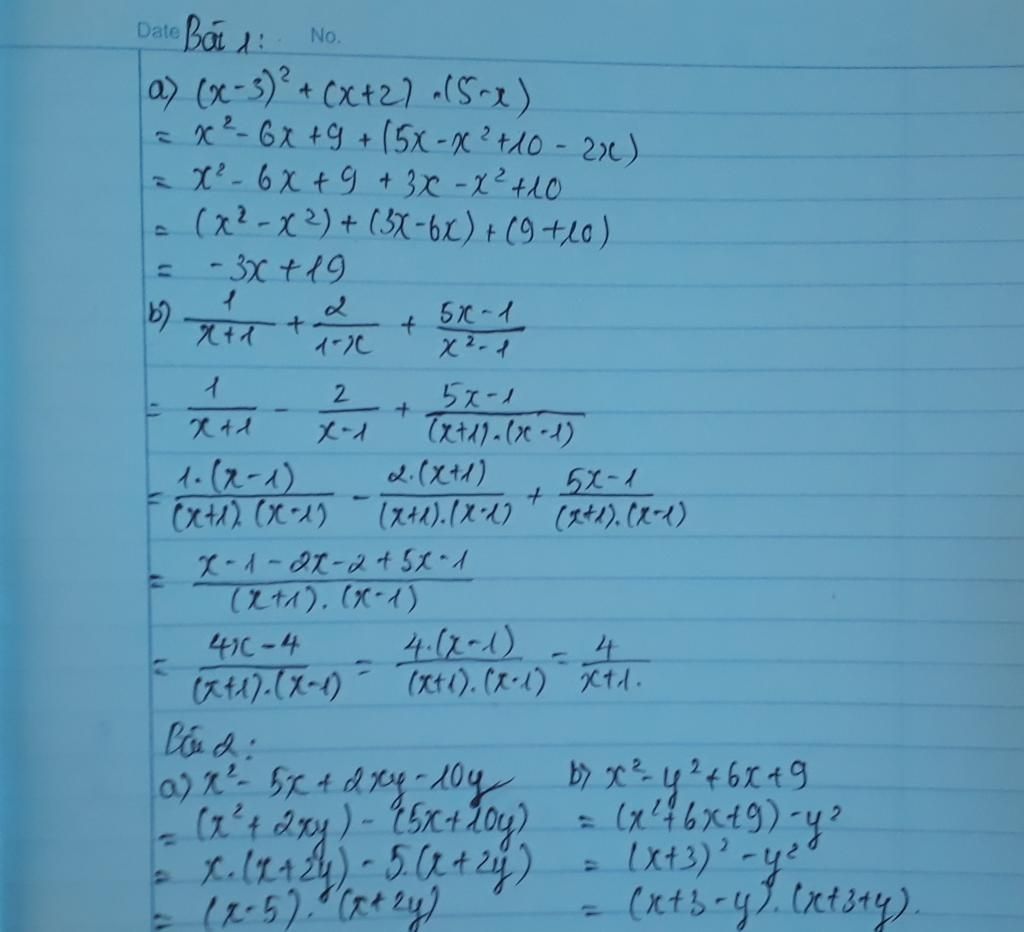 Date Bài 1: No.
a) (x-3)² + (x+2) . (5-x)
= x² - 6x + 9 + (5x - x² + 10 - 2x)
= x² - 6x + 9 + 3x - x² + 10
= (x² - x²) + (3x - 6x) + (9 + 10)
= -3x + 19
b) 1/(x+1) + 2/(1-x) + (5x-1)/(x²-1)
= 1/(x+1) - 2/(x-1) + (5x-1)/((x+1).(x-1))
= (1.(x-1))/((x+1).(x-1)) - (2.(x+1))/((x+1).(x-1)) + (5x-1)/((x+1).(x-1))
= (x-1-2x-2+5x-1)/((x+1).(x-1))
= (4x-4)/((x+1).(x-1)) = (4.(x-1))/((x+1).(x-1)) = 4/(x+1).
Bài 2:
a) x² - 5x + 2xy - 10y b) x² - y² + 6x + 9
= (x² + 2xy) - (5x + 10y) = (x² + 6x + 9) - y²
= x.(x+2y) - 5.(x+2y) = (x+3)² - y²
= (x-5).(x+2y) = (x+3-y).(x+3+y).